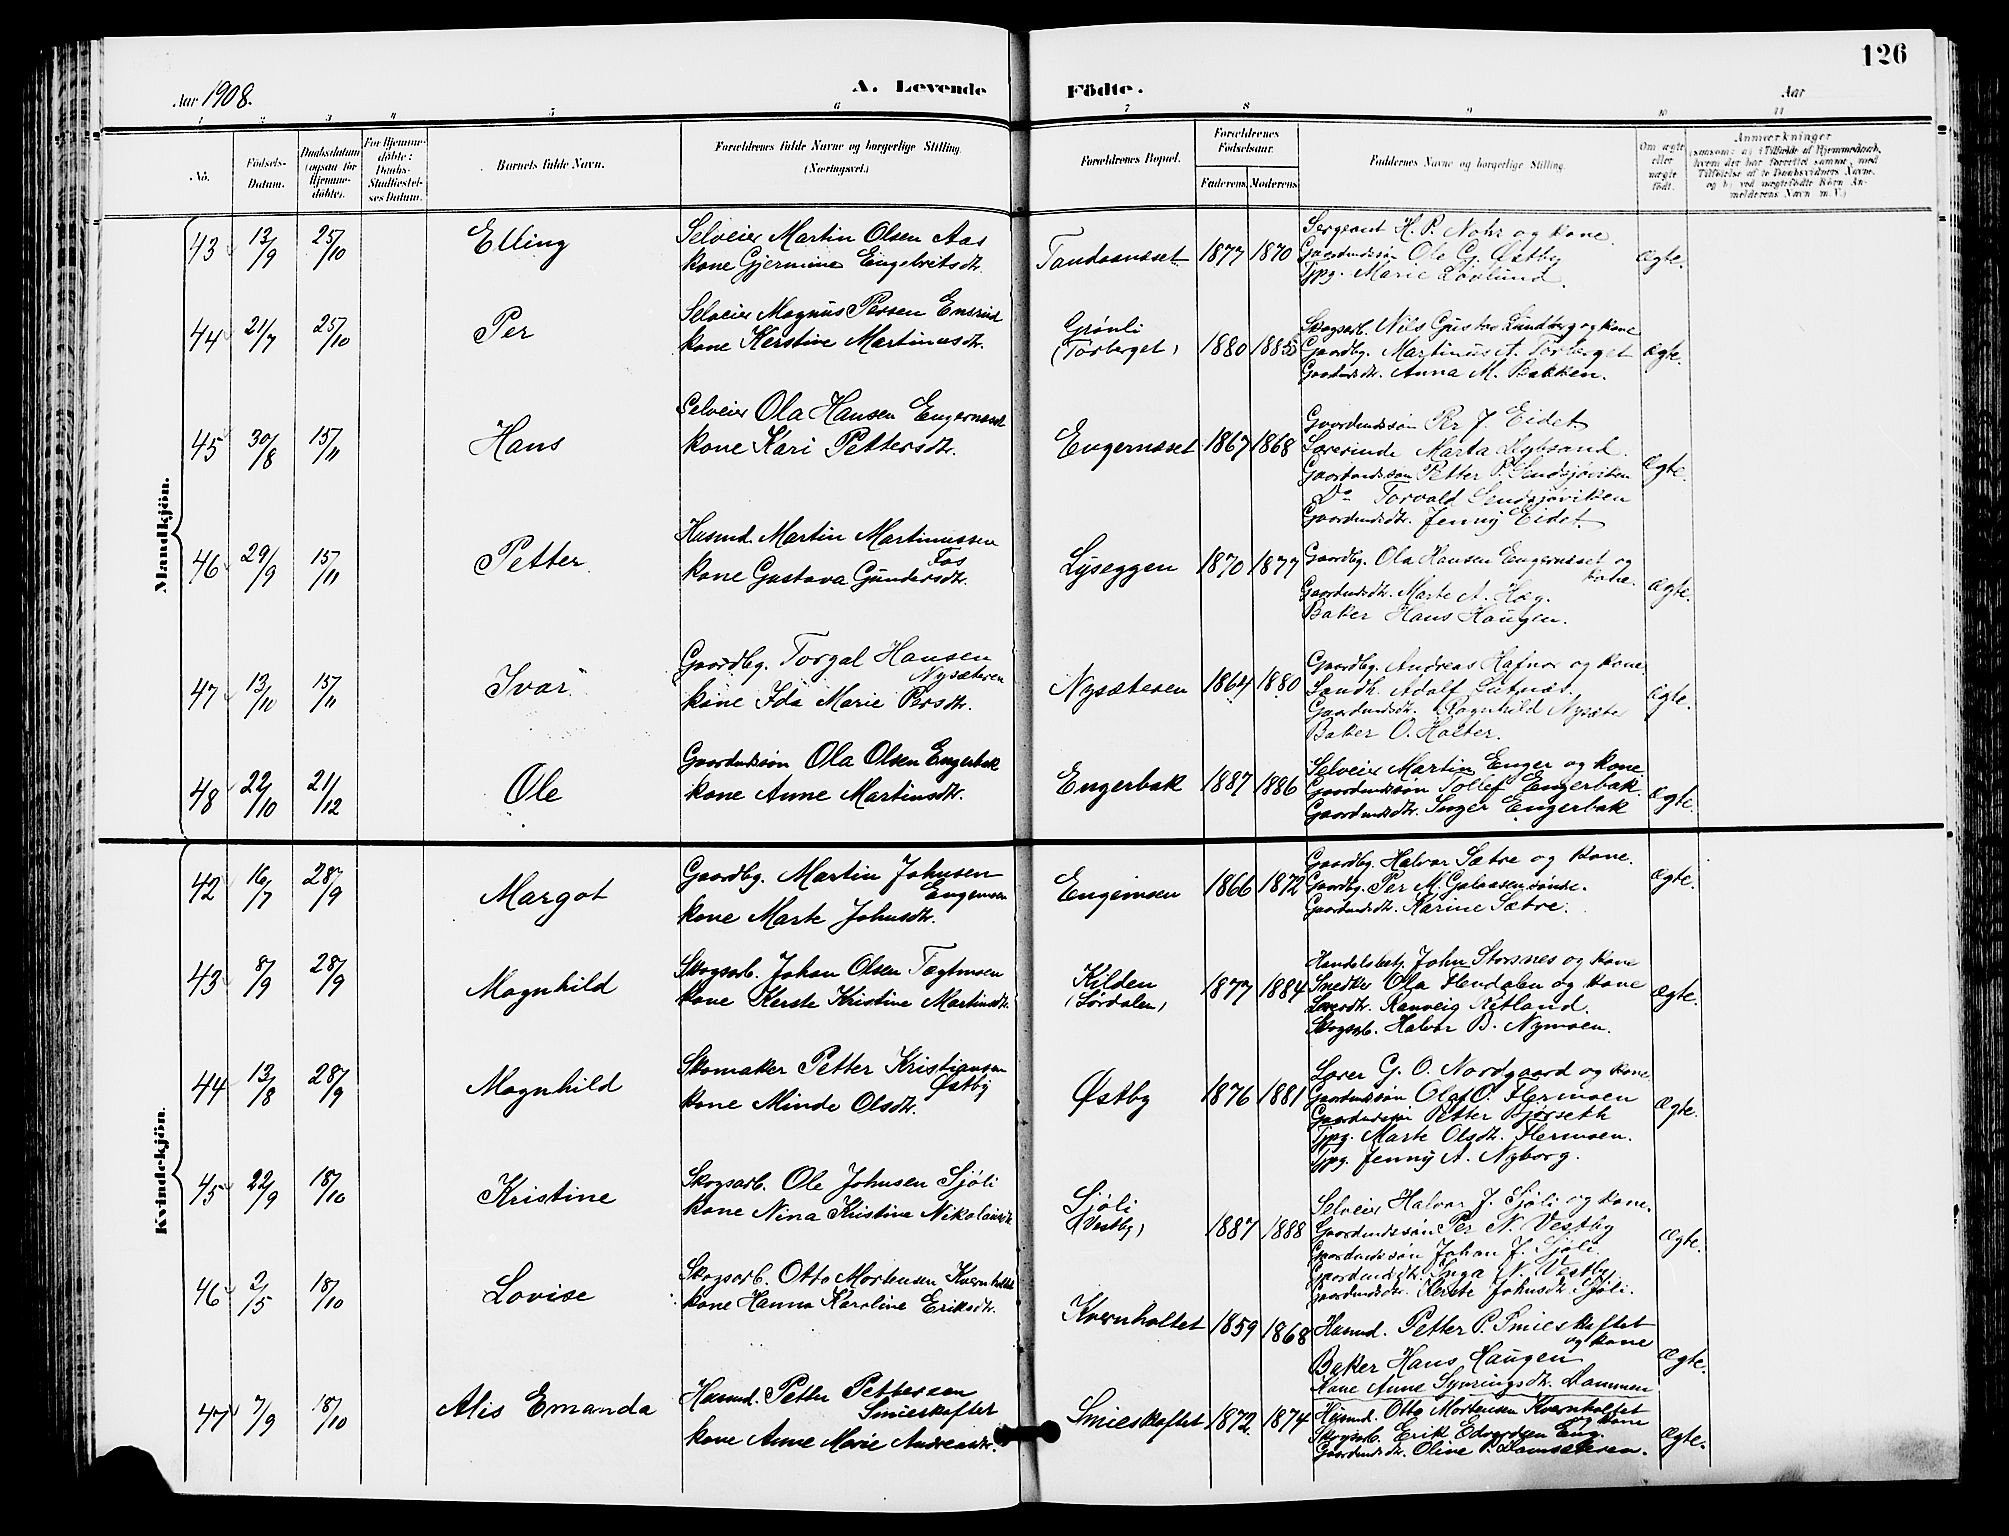 126
Aar 1908.
A. Levende Födte.
Aar
1 2 3 4 5 6 7 8 9 10 11
No.
Födsels-Datum.
Daabsdatum (ogsaa for Hjemmedöbte).
For Hjemmedöbte: Daabs-Stadfæstelses Datum.
Barnets fulde Navn.
Forældrenes fulde Navne og borgerlige Stilling. (Næringsvei.)
Forældrenes Bopæl.
Forældrenes Födselsaar.
Faderens. Moderens.
Faddernes Navne og borgerlige Stilling.
Om ægte eller uægte födt.
Anmærkninger
Mandkjön.
43 13/9 25/10 Elling
Selveier Martin Olsen Aas
kone Gjermine Engebritsdtr.
Tandaanæset 1877 1870
Sergeant H. P. Nohr og kone.
Gaardmdssön Ole G. Østby
Tjpg. Marie Lövlund.
Ægte.
44 21/7 25/10 Per
Selveier Magnus Persen Ensrud
kone Kerstine Martinusdtr.
Grönli
(Torberget) 1880 1885
Skogsarb. Nils Gustav Lundberg og kone
Gaardbg. Martinus A. Torberget
Gaardmdsdtr. Anna M. Bakken.
Ægte.
45 30/8 15/11 Hans
Selveier Ola Hansen Engernæset
kone Kari Pettersdtr.
Engernæset 1867 1868
Gaardmdssön Per J. Eidet
Lærerinde Marta
Gaardmdssön Petter P. Sendsjöviken
Do Torvald Sendsjöviken
Gaardmdsdtr. Jenny Eidet.
Ægte.
46 29/9 15/11 Petter
Husmd. Martin Martinussen
Fos
kone Gustava Gundersdtr.
Lyseggen 1870 1877
Gaardbg. Ola Hansen Engernæset og
kone.
Gaardmdsdtr. Marte A. Hæg.
Baker Hans Haugen.
Ægte.
47 13/10 15/11 Ivar
Gaardbg. Torgal Hansen
Nysæteren
kone Ida Marie Persdtr.
Nysæteren 1864 1880
Gaardbg. Andreas Hafnor og kone
Landh. Adolf Lutnæs.
Gaardmdsdtr. Ragnhild Nysæter
Baker O. Holter.
Ægte.
48 22/10 21/12 Ole
Gaardmdssön Ola Olsen Engerbak
kone Anne Martinsdtr.
Engerbak 1887 1886
Selveier Martin Enger og kone
Gaardmdssön Tollef Engerbak.
Gaardmdsdtr. Inger Engerbak
Ægte.
Kvindekjön.
42 16/7 28/9 Margot
Gaardbg. Martin Johnsen
Engemoen
kone Marte Johnsdtr.
Engemoen 1866 1872
Gaardbg. Halvor Sætre og kone.
Gaardbg. Per M. Galaasen
Gaardmdsdtr. Karine Sætre.
Ægte.
43 8/9 28/9 Magnhild
Skogsarb. Johan Olsen Tægtmoen
kone Kerste Kristine Martinsdtr.
Kilden
(Lördalen) 1877 1884
Handelsbestg. John Storsnes og kone
Snedker Ola Flendalen og kone
Lærerdtr. Ranveig Retland.
Skogsarb. Halvor B. Nymoen.
Ægte.
44 13/8 28/9 Magnhild
Skomaker Petter Kristiansen
Østby
kone Minda Olsdtr.
Østby 1876 1881
Lærer G. O. Nordgaard og kone
Gaardmdssön Olaf O. Flermoen
Gaardmdssön Petter Björseth
Tjpg. Marte Olsdtr. Flermoen.
Tjpg. Jenny A. Nyborg.
Ægte.
45 22/9 18/10 Kristine
Skogsarb. Ole Johnsen Sjöli
kone Nina Kristine Nikolaisdtr.
Sjöli
(Vestby) 1887 1888
Selveier Halvor J. Sjöli og kone.
Gaardmdssön Per N. Vestby
Gaardmdssön Johan J. Sjöli.
Gaardmdsdtr. Inga N. Vestby
Gaardmdsdtr. Kerste Johnsdtr. Sjöli.
Ægte.
46 2/5 18/10 Lovise
Skogsarb. Otto Mortensen Kvernholtet
kone Hanna Karoline Eriksdtr.
Kvernholtet 1859 1868
Husmd. Petter P. Smieskoftet
og kone
Baker Hans Haugen
Kone Anne Dammen
Ægte.
47 7/9 18/10 Alis Emanda
Husmd. Petter Pettersen
Smieskoftet
kone Anne Marie Andreasdtr.
Smieskoftet 1872 1874
Husmd. Otto Mortensen Kvernholtet
og kone
Skogsarb. Erik Edvardsen Eng.
Gaardmdsdtr. Oline P. Damsæteren.
Ægte.